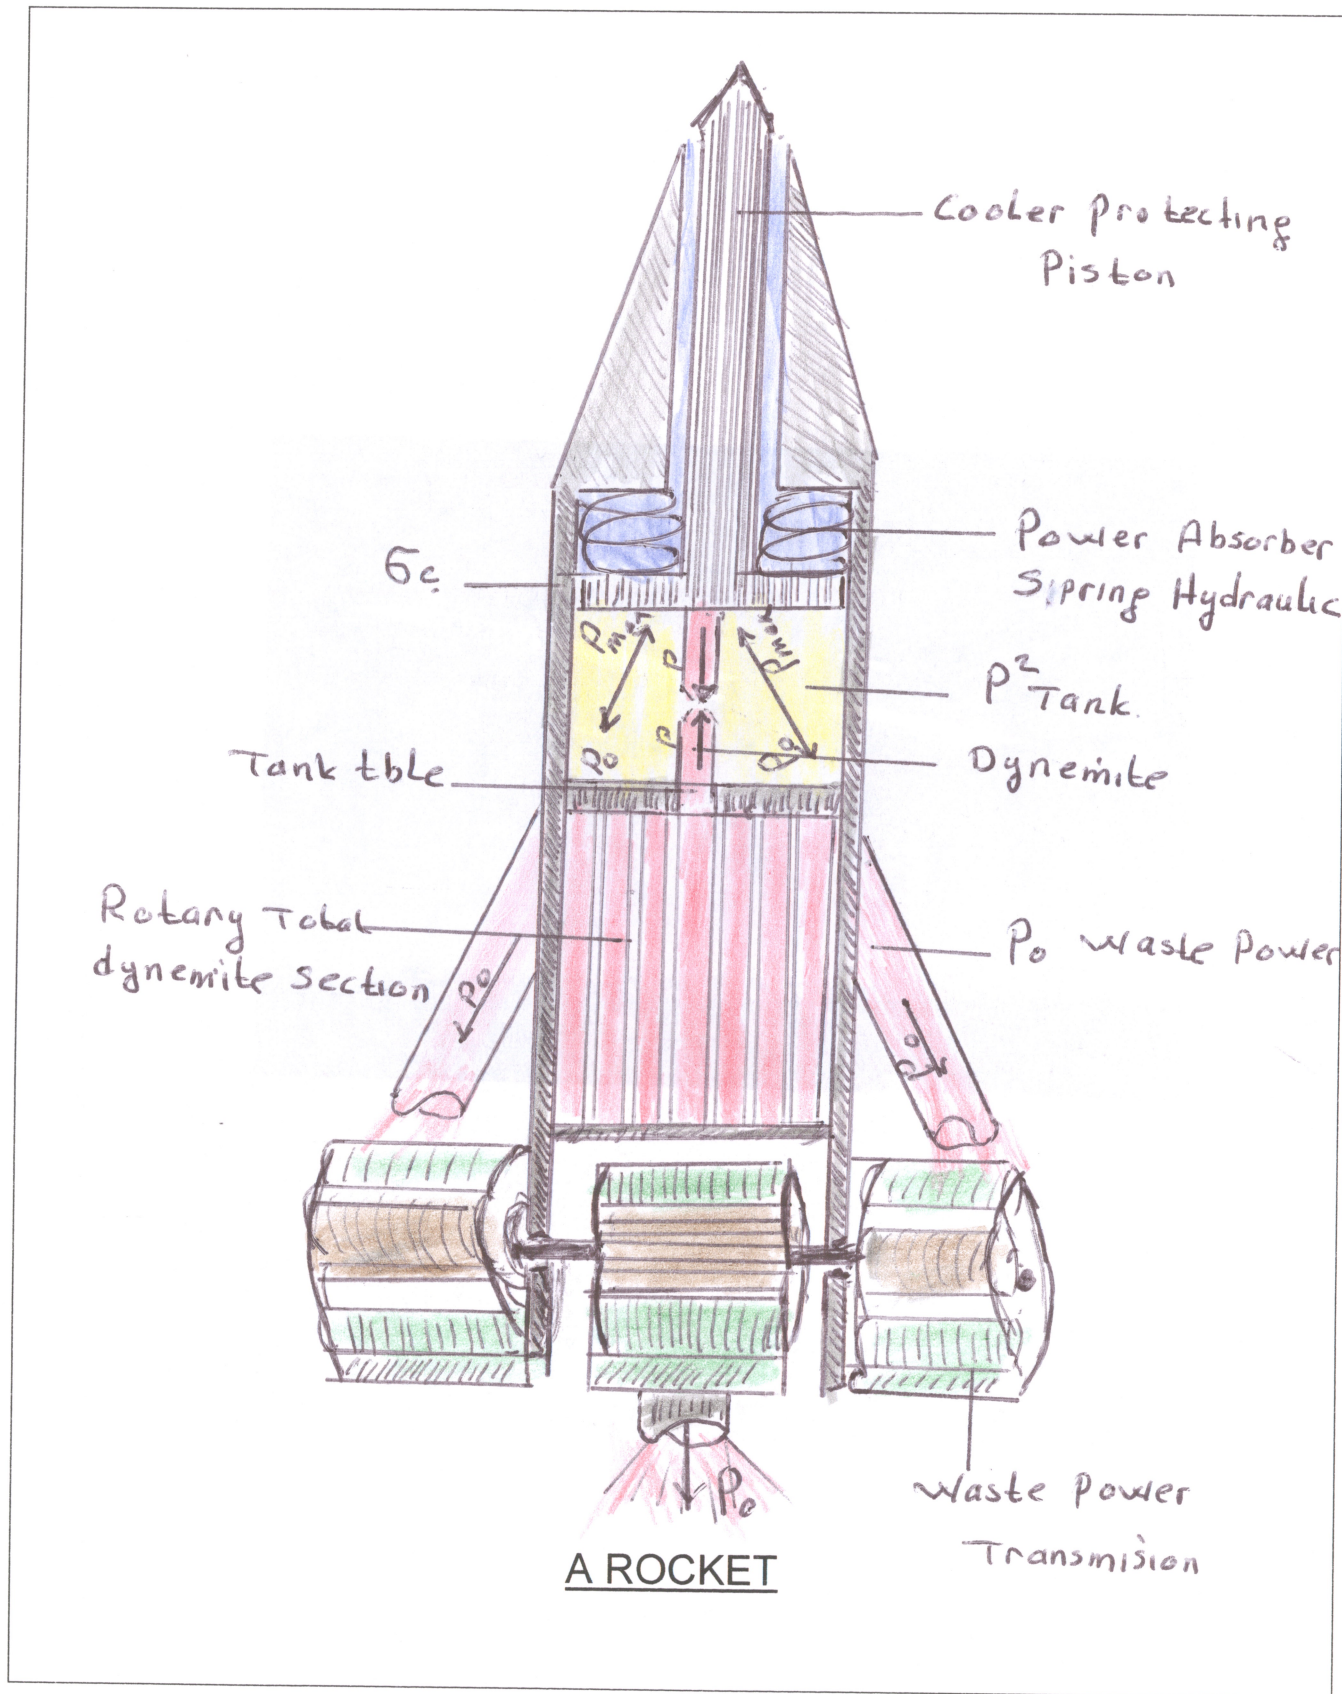 Cooler Protecting
Piston
Power Absorber
Sipring Hydraulic
6c
Pmax
Pmax
P
P² Tank.
P
Po
Po
Tank tble
Dynemite
Rotary Total
dynemite Section
Po Waste Power
Po
Po
Po
Waste Power
Transmision
A ROCKET